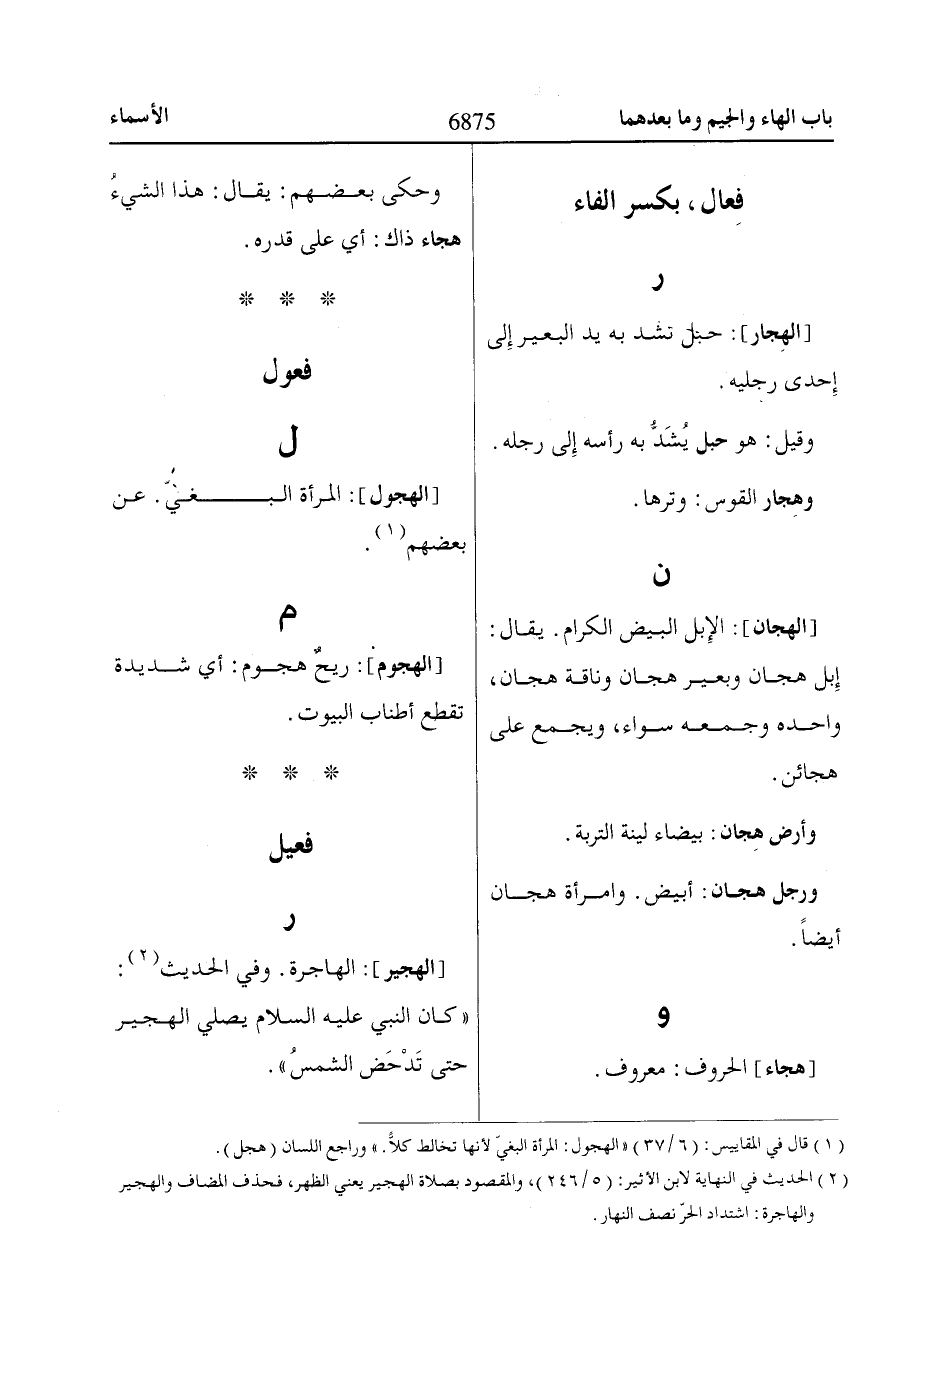 باب الهاء والجيم وما بعدهما 6875 الأسماء
فعال، بكسر الفاء
ر
[الهجار]: حبل تشد به يد البعير إلى
إحدى رجليه.
وقيل: هو حبل يُشَدُّ به رأسه إلى رجله.
وهجار القوس: وترها.
ن
[الهجان]: الإبل البيض الكرام. يقال:
إبل هجان وبعير هجان وناقة هجان،
واحده وجمعه سواء، ويجمع على
هجائن.
وأرض هجان: بيضاء لينة التربة.
ورجل هجان: أبيض. وامرأة هجان
أيضاً.
و
[هجاء] الحروف: معروف.
وحكى بعضهم: يقال: هذا الشيءُ
هجاء ذاك: أي على قدره.
* * *
فعول
ل
[الهجول]: المرأة البغيّ. عن
بعضهم(١).
م
[الهجوم]: ريحٌ هجوم: أي شديدة
تقطع أطناب البيوت.
* * *
فعيل
ر
[الهجير]: الهاجرة. وفي الحديث(٢):
«كان النبي عليه السلام يصلي الهجير
حتى تَدْحَض الشمسُ».
(١) قال في المقاييس: (٦/٣٧) «الهجول: المرأة البغيّ لأنها تخالط كلاًّ.» وراجع اللسان (هجل).
(٢) الحديث في النهاية لابن الأثير: (٥/٢٤٦)، والمقصود بصلاة الهجير يعني الظهر، فحذف المضاف والهجير
والهاجرة: اشتداد الحرّ نصف النهار.